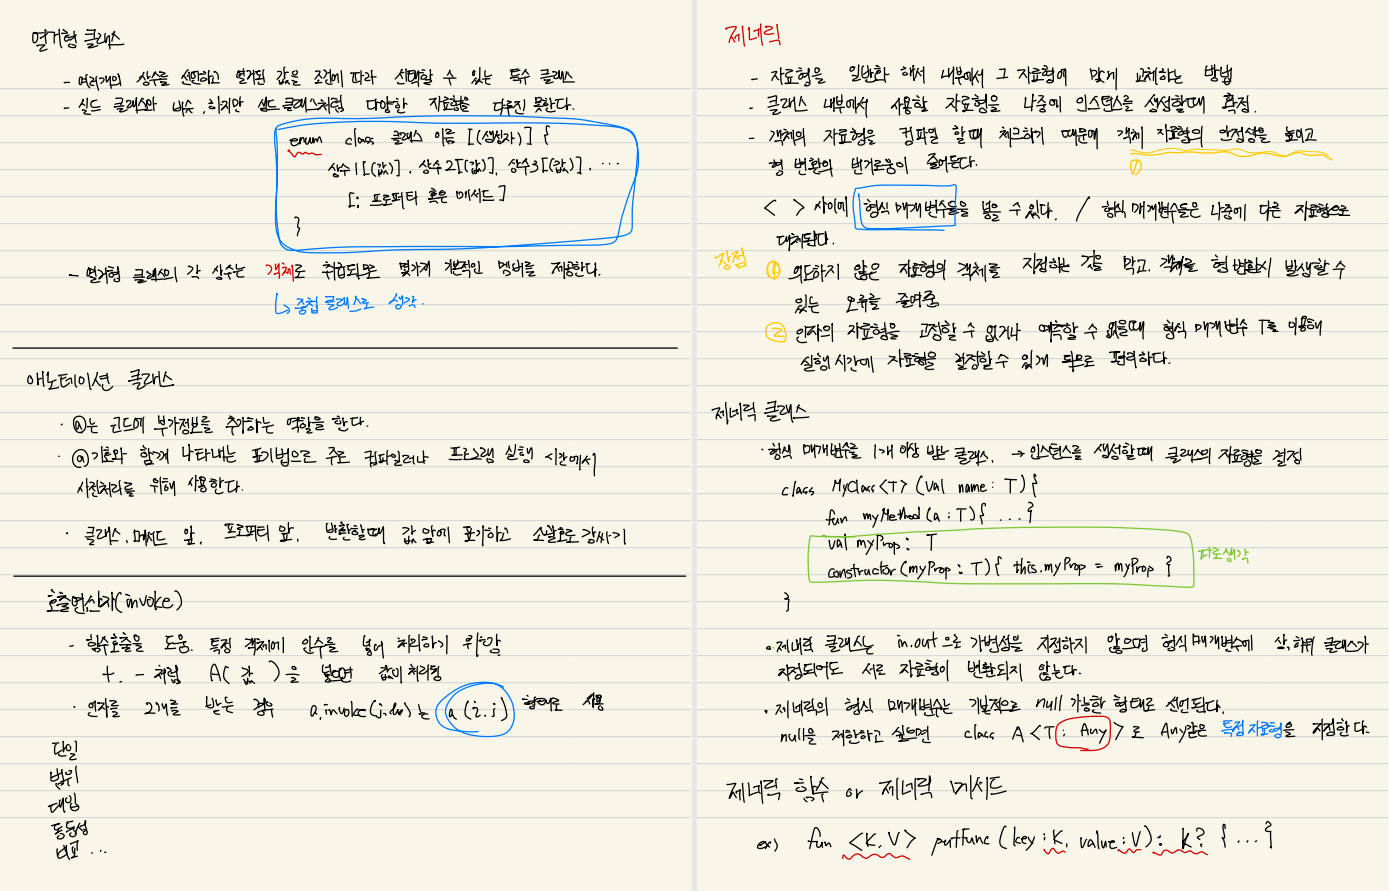 열거형 클래스
- 여러개의 상수를 선언하고 열거된 값을 조건에 따라 선택할 수 있는 특수 클래스
- 실드 클래스와 비슷, 하지만 실드 클래스처럼 다양한 자료형을 다루진 못한다.
enum class 클래스 이름 [(생성자)] {
상수1[(값)], 상수2[(값)], 상수3[(값)], ...
[; 프로퍼티 혹은 메서드]
}
- 열거형 클래스의 각 상수는 객체로 취급되므로 몇가지 기본적인 멤버를 제공한다.
↳ 중첩 클래스로 생각.
애노테이션 클래스
· @는 코드에 부가정보를 추가하는 역할을 한다.
· @기호와 함께 나타내는 표기법으로 주로 컴파일러나 프로그램 실행 시간에서
사전처리를 위해 사용한다.
· 클래스, 메서드 앞, 프로퍼티 앞, 반환할때 값 앞에 표기하고 소괄호로 감싸기
호출연산자(invoke)
- 함수호출을 도움. 특정 객체에 인수를 넣어 처리하기 위함
+, - 처럼 A( 값 )을 넣으면 값이 처리됨
· 인자를 2개를 받는 경우 a.invoke(i,j)는 a(i,j) 형태로 사용
단일
범위
대입
동등성
비교 ...
제네릭
- 자료형을 일반화 해서 내부에서 그 자료형에 맞게 교체하는 방법
- 클래스 내부에서 사용할 자료형을 나중에 인스턴스를 생성할때 확정.
- 객체의 자료형을 컴파일 할때 체크하기 때문에 객체 자료형의 안정성을 높이고
①
형 변환의 번거로움이 줄어든다.
< > 사이에 형식 매개변수들을 넣을 수 있다. / 형식 매개변수들은 나중에 다른 자료형으로
대체된다.
장점
① 의도하지 않은 자료형의 객체를 지정하는 것을 막고, 객체를 형 변환시 발생할 수
있는 오류를 줄여줌.
② 인자의 자료형을 고정할 수 없거나 예측할 수 없을때 형식 매개변수 T를 이용해
실행 시간에 자료형을 결정할 수 있게 되므로 편리하다.
제네릭 클래스
· 형식 매개변수를 1개 이상 받는 클래스. → 인스턴스를 생성할때 클래스의 자료형을 결정
class MyClass<T>(val name: T){
fun myMethod(a: T){ ... }
val myProp: T
constructor(myProp: T){ this.myProp = myProp }
따로생각
}
· 제네릭 클래스는 in.out으로 가변성을 지정하지 않으면 형식 매개변수에 상,하위 클래스가
지정되어도 서로 자료형이 변환되지 않는다.
· 제네릭의 형식 매개변수는 기본적으로 null 가능한 형태로 선언된다.
null을 제한하고 싶으면 class A<T: Any>로 Any같은 특정자료형을 지정한다.
제네릭 함수 or 제네릭 메서드
ex) fun <K,V> putFunc(key: K, value: V): K? {...}